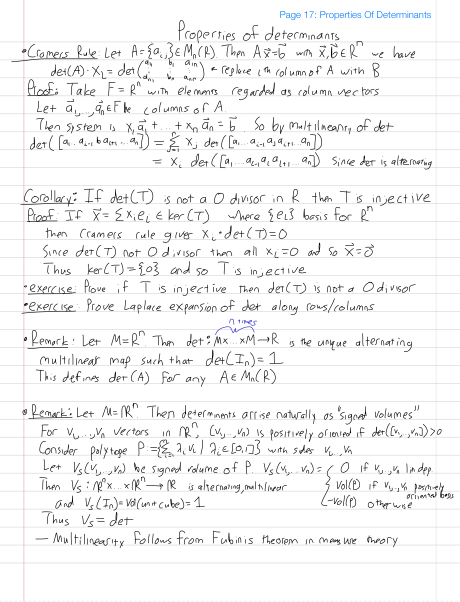 Page 17: Properties Of Determinants
Properties of determinants
• Cramers Rule: Let A = {a_{i,j}} ∈ M_n(R). Then A x⃗ = b⃗ with x⃗, b⃗ ∈ R^n we have
det(A) · x_i = det( a_{11} b_1 a_{1n} ... ) ← replace ith column of A with B
Proof: Take F = R^n with elements regarded as column vectors
Let a⃗_1, ..., a⃗_n ∈ F be columns of A.
Then system is x_1 a⃗_1 + ... + x_n a⃗_n = b⃗. So by multilinearity of det
det([a_1 ... a_{i-1} b a_{i+1} ... a_n]) = Σ_{j=1}^n x_j det([a_1 ... a_{i-1} a_j a_{i+1} ... a_n])
= x_i det([a_1 ... a_{i-1} a_i a_{i+1} ... a_n]) since det is alternating
Corollary: If det(T) is not a 0 divisor in R then T is injective
Proof: If x⃗ = Σ x_i e_i ∈ ker(T) where {e_i} basis for R^n
then cramers rule gives x_i · det(T) = 0
Since det(T) not 0 divisor then all x_i = 0 and so x⃗ = 0⃗
Thus ker(T) = {0} and so T is injective
• exercise: Prove if T is injective then det(T) is not a 0 divisor
• exercise: Prove Laplace expansion of det along rows/columns
n times
• Remark: Let M = R^n. Then det: M x ... x M → R is the unique alternating
multilinear map such that det(I_n) = 1
This defines det(A) for any A ∈ M_n(R)
• Remark: Let M = ℝ^n. Then determinents arrise naturally as "signed volumes"
For v_1, ..., v_n vectors in ℝ^n, (v_1, ..., v_n) is positively oriented if det([v_1, ..., v_n]) > 0
Consider polytope P := {Σ_{i=1}^n λ_i v_i | λ_i ∈ [0,1]} with sides v_1, ..., v_n
Let V_s(v_1, ..., v_n) be signed volume of P. V_s(v_1, ..., v_n) = { 0 if v_1, ..., v_n lin dep.
Then V_s: ℝ^n x ... x ℝ^n → ℝ is alternating, multilinear { vol(P) if v_1, ..., v_n positively oriented basis
and V_s(I_n) = vol(unit cube) = 1 { -vol(P) otherwise
Thus V_s = det
— Multilinearity follows from Fubinis theorem in measure theory